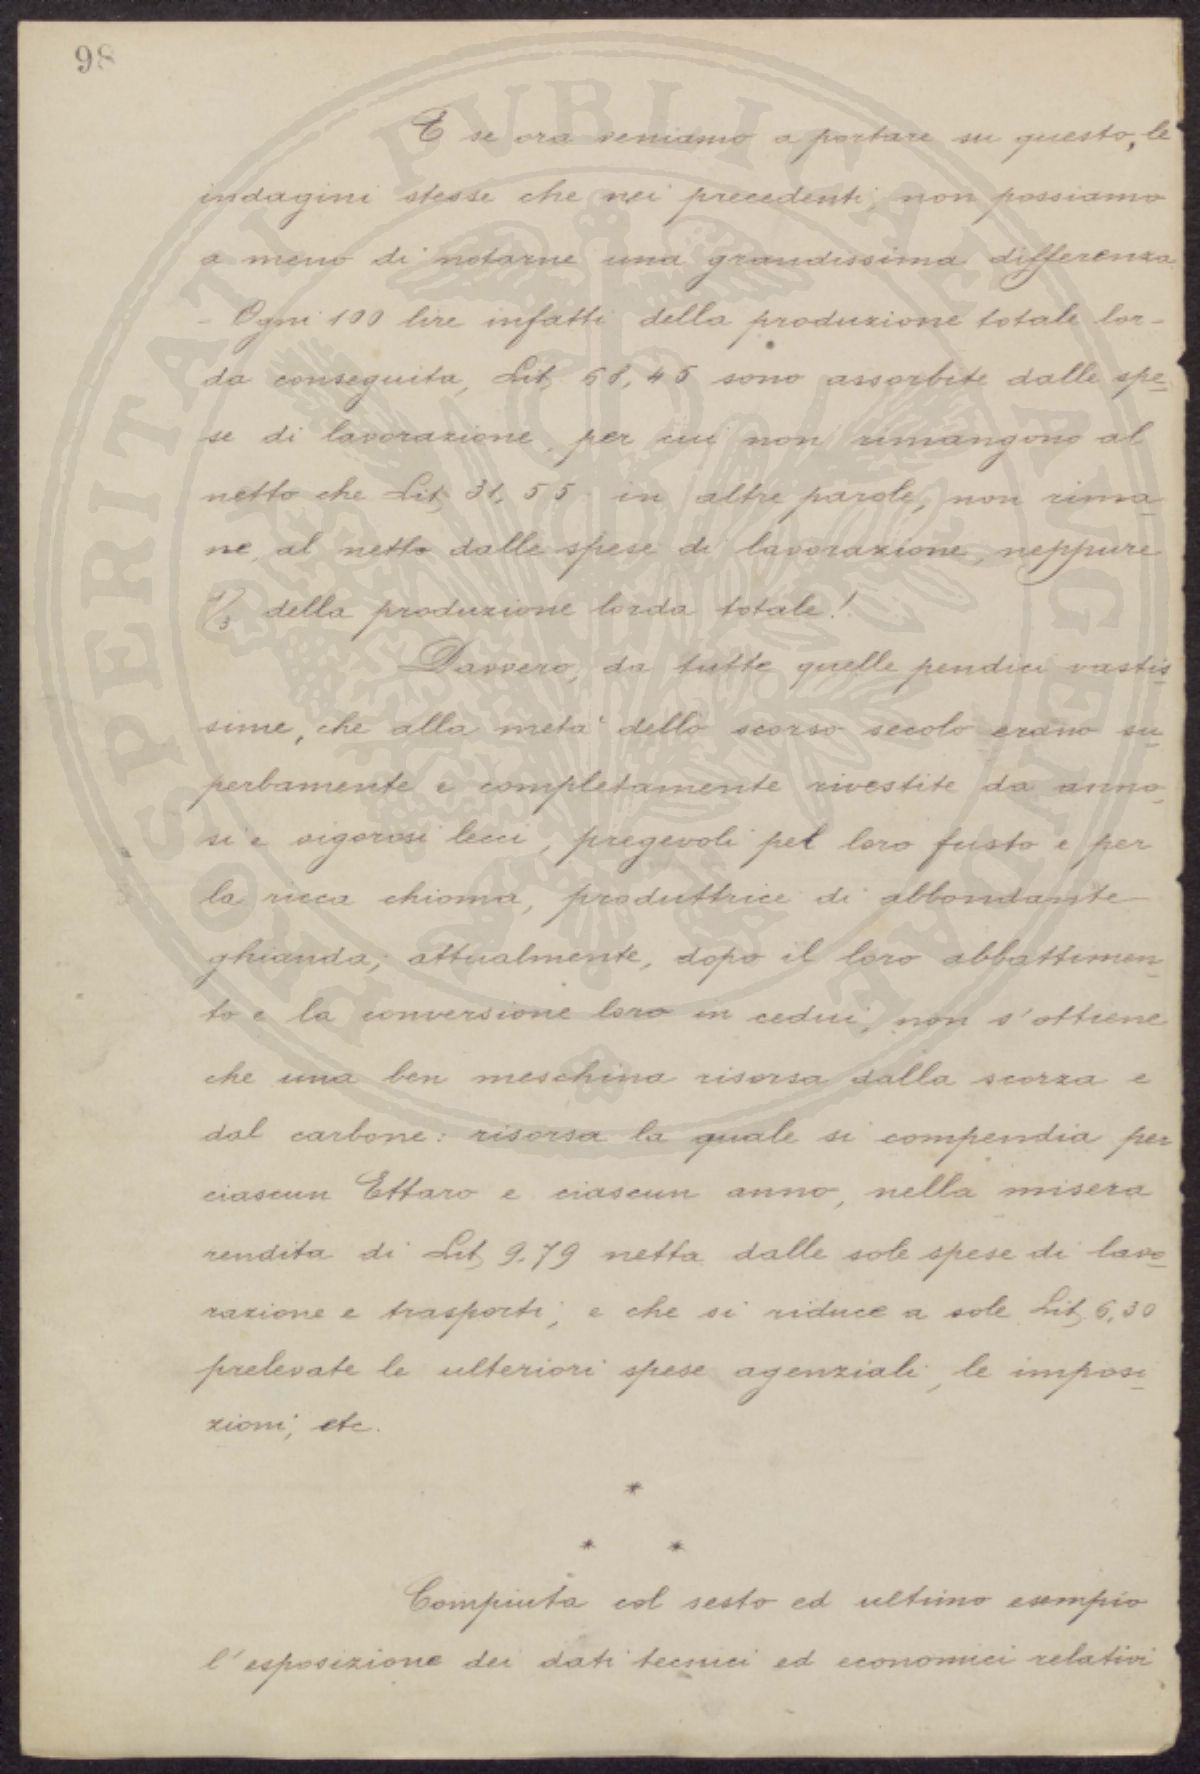 98
E se ora veniamo a portare su questo, le
indagini stesse che nei precedenti, non possiamo
a meno di notarne una grandissima differenza
- Ogni 100 lire infatti della produzione totale lor-
da conseguita, Lit. 68,45 sono assorbite dalle spe-
se di lavorazione, per cui non rimangono al
netto che Lit. 31,55 in altre parole, non rima-
ne, al netto dalle spese di lavorazione, neppure
1/3 della produzione lorda totale!
Davvero, da tutte quelle pendici vastis-
sime, che alla metà dello scorso secolo erano su-
perbamente e completamente rivestite da anno-
si e vigorosi lecci, pregevoli pel loro fusto e per
la ricca chioma, produttrice di abbondante
ghianda; attualmente, dopo il loro abbattimen-
to e la conversione loro in cedui, non s'ottiene
che una ben meschina risorsa dalla scorza e
dal carbone: risorsa la quale si compendia per
ciascun Ettaro e ciascun anno, nella misera
rendita di Lit. 9.79 netta dalle sole spese di lavo-
razione e trasporti; e che si riduce a sole Lit. 6,30
prelevate le ulteriori spese agenziali, le imposi-
zioni, etc.
*
* *
Compiuta col sesto ed ultimo esempio
l'esposizione dei dati tecnici ed economici relativi
PROSPERITATI PVBLICAE AVGENDAE